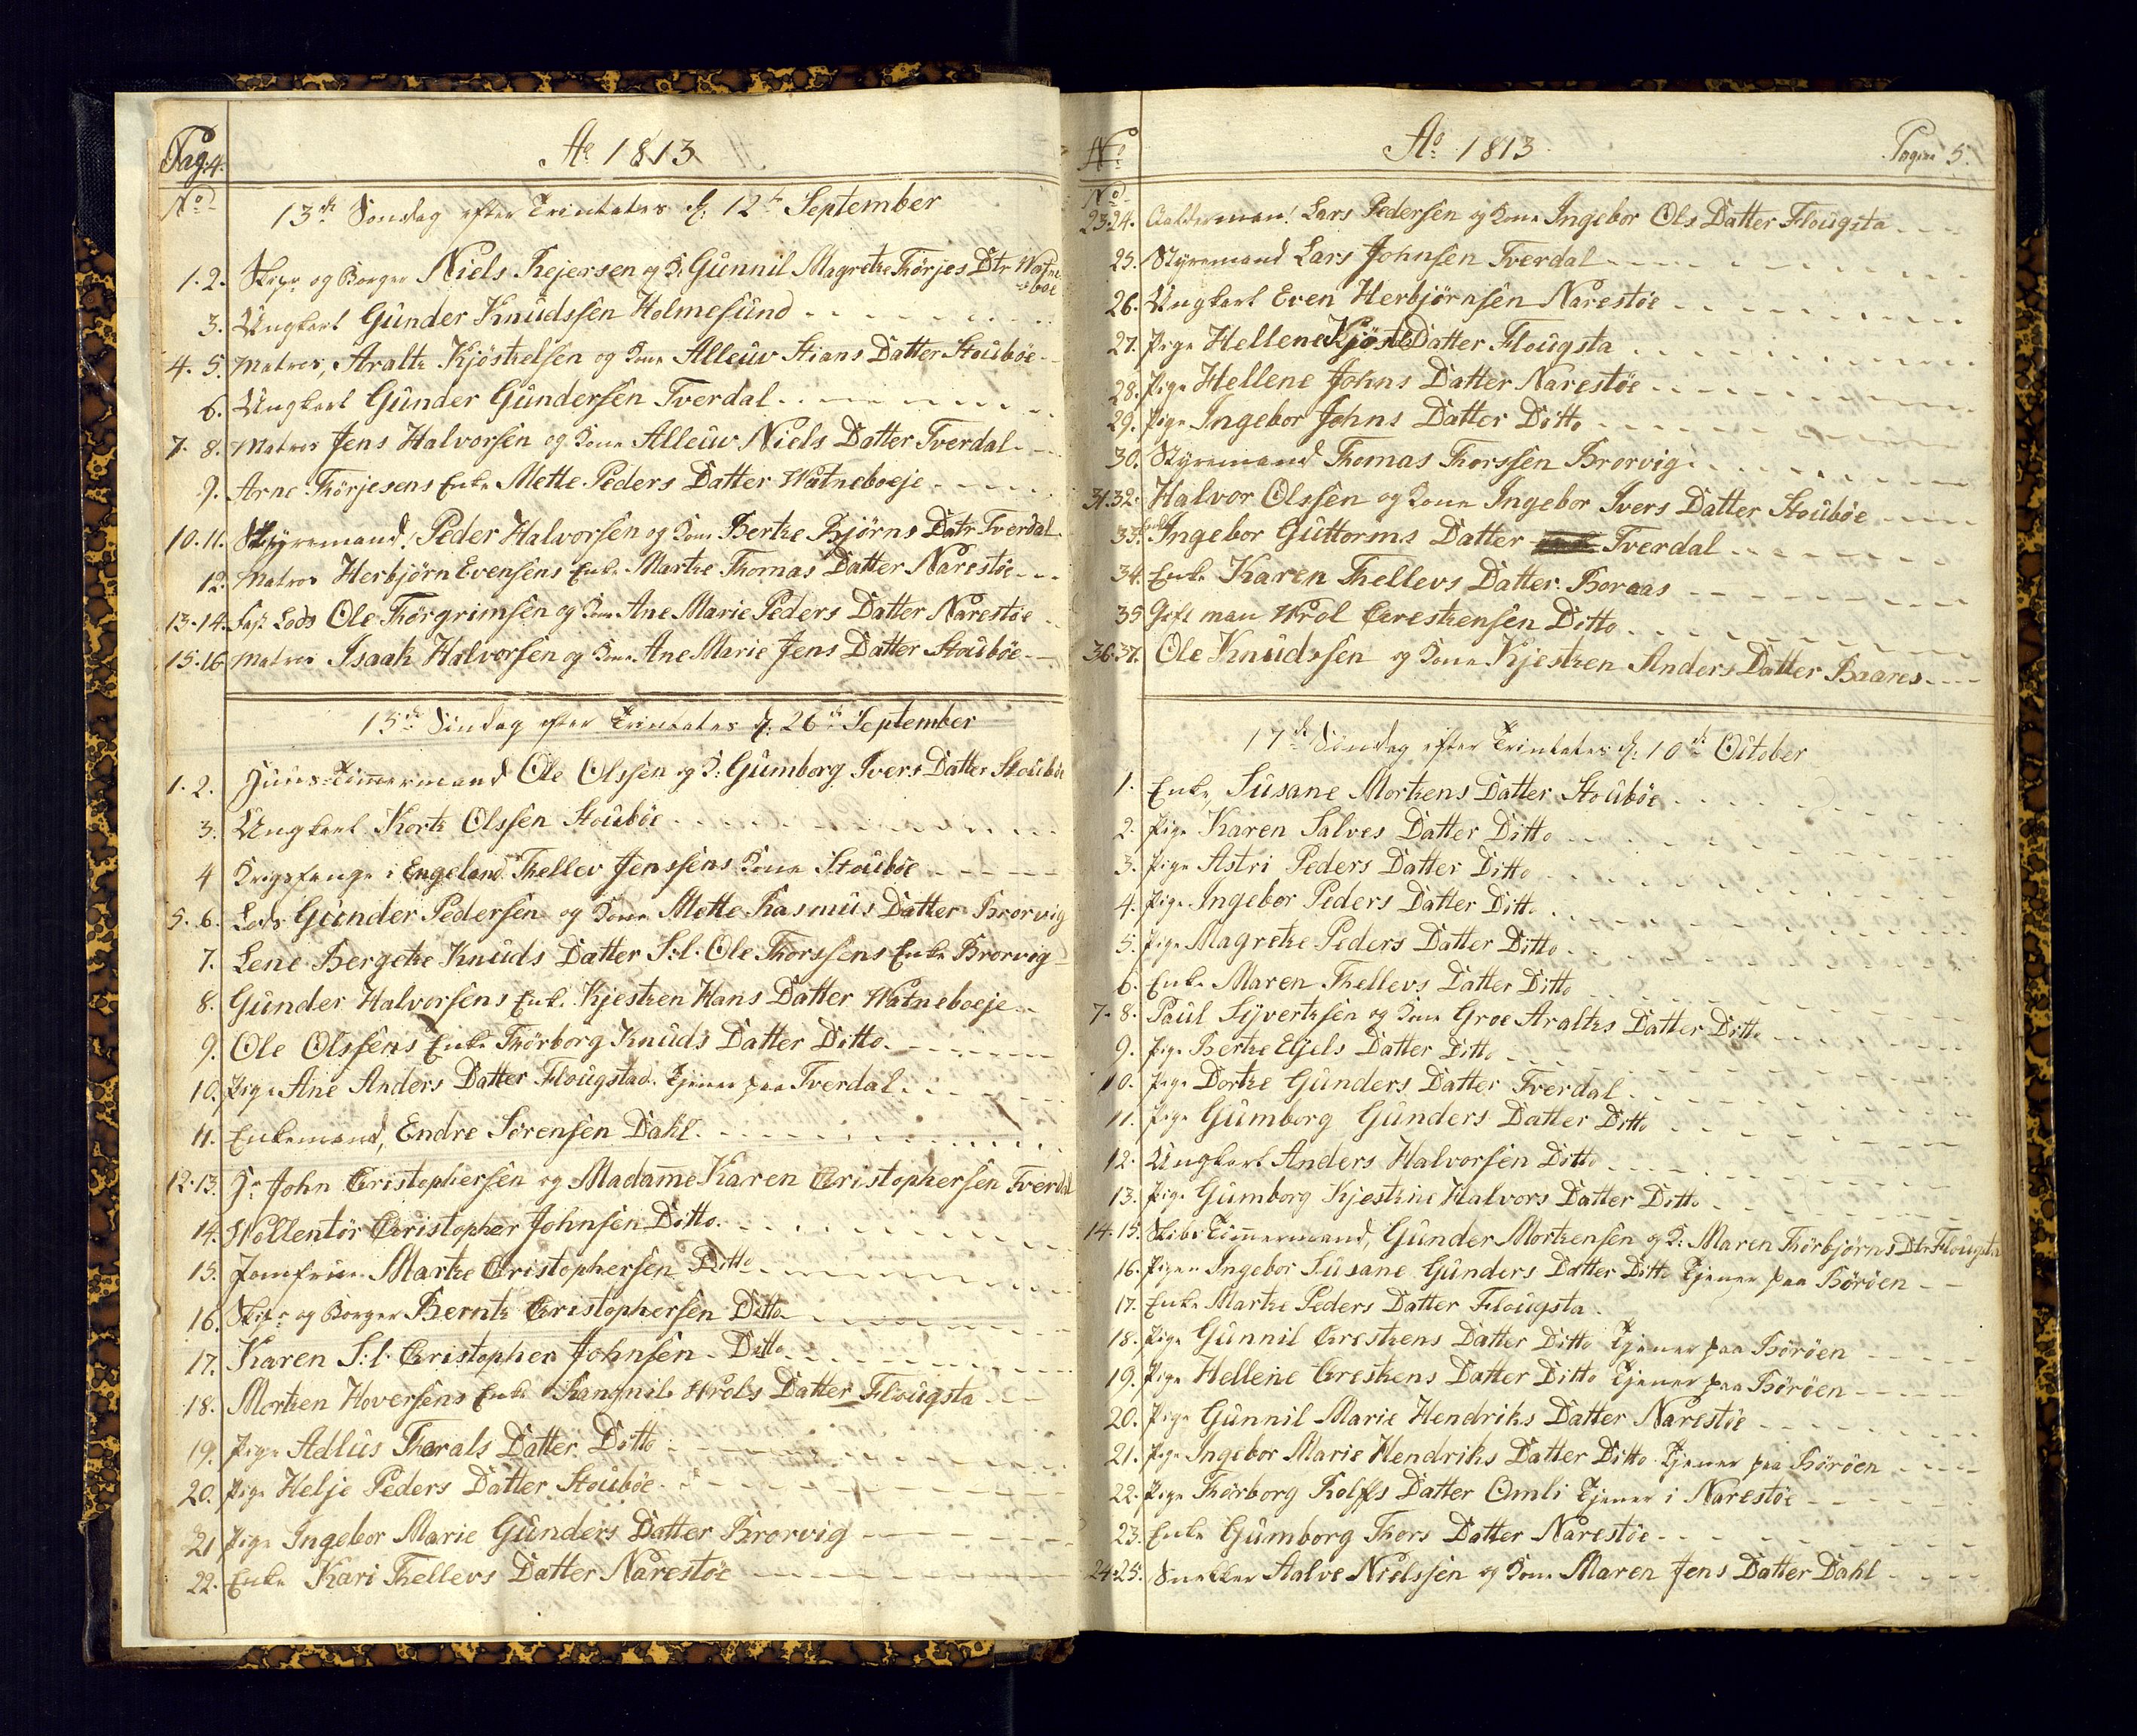 Pag. 4.
Ao 1813
No
13de Søndag efter Trinitatis d. 12te September
1. 2. Skipr og Borger Niels Rejersen og K: Gunnil Magrethe Thörjes Dtr Watne-
boe
3. Ungkarl Gunder Knudssen Holmesund
4. 5. Matros, Aralth Kjösthelsen og Kone Alleuv Stians Datter Stoubóe
6. Ungkarl Gunder Gundersen Tverdal
7. 8. Matros Jens Halvorsen og Kone Alleuv Niels Datter Tverdal
9. Arne Thörjesens Enke Mette Peders Datter Watneboeje
10. 11. Styremand Peder Halvorsen og Kone Berthe Bjórns Datr Tverdal
12. Matros Herbjörn Evensens Enke Marthe Thomas Datter Narestóe
13. 14. Fast Lods Ole Thörgrimsen og Kone Ane Marie Peders Datter Narestóe
15. 16 Matros Isaak Halvorsen og Kone Ane Marie Jens Datter Stoubóe
15de Søndag efter Trinitatis d. 26de September
1. 2. Huus-Tim̅ermand Ole Olssen og K: Gumborg Ivers Datter Stoubóe
3. Ungkarl Korth Olssen Stoubóe
4 Krigsfange i Engeland Thellev Jenssens Kone Stoubóe
5. 6. Lods Gunder Pedersen og Kone Mette Rasmus Datter Brorvig
7. Lene Bergethe Knuds Datter S:l. Ole Thorssens Enke Brorvig
8. Gunder Halvorsens Enke Kjesthen Hans Datter Watneboeje
9. Ole Olssens Enke Thörborg Knuds Datter Ditto
10. Pige Ane Anders Datter Flougstad. Tjener paa Tverdal
11. Enkemand, Endre Sörensen Dahl
12. 13. Hr John Christophersen og Madam̅e Karen Christophersen Tverdal
14. Wollentör Christopher Johnsen Ditto
15. Jomfrue Marthe Christophersen Ditto
16. Skipr og Borger Bernth Christophersen Ditto
17. Karen S:l. Christopher Johnsen Ditto
18. Morthen Hoversens Enke Rangnil Wrols Datter Flougsta
19. Pige Adlus Tharals Datter Ditto
20. Pige Helje Peders Datter Stoubóe
21 Pige Ingebor Marie Gunders Datter Brorvig
22. Enke Kari Thellevs Datter Narestóe
No
Ao 1813
Pagina 5.
No
23. 24. Aalderman! Lars Pedersen og Kone Ingebor Ols Datter Flougsta
25. Styremand Lars Johnsen Tverdal
26. Ungkarl Even Herbjörnsen Narestóe
27. Pige Hellene Kjöstel Datter Flougsta
28. Pige Hellene Johns Datter Narestóe
29. Pige Ingebor Johns Datter Ditto
30. Styremand Thomas Thorssen Brorvig
31. 32. Halvor Olssen og Kone Ingebor Ivers Datter Stoubóe
33. Ingebor Guttorms Datter Tverdal
34. Enke Karen Thellevs Datter Boraas
35 Gift man Wrol Cresthensen Ditto
36. 37. Ole Knudssen og Kone Kjesthen Anders Datter Baares
17de Søndag efter Trinitatis d. 10de October
1. Enke Susane Morthens Datter Stoubóe
2. Pige Karen Salves Datter Ditto
3. Pige Astri Peders Datter Ditto
4. Pige Ingebor Peders Datter Ditto
5. Pige Magrethe Peders Datter Ditto
6. Enke Maren Thellevs Datter Ditto
7. 8. Paul Syverthsen og Kone Groe Aralths Datter Ditto
9. Pige Berthe Eljels Datter Ditto
10. Pige Dorthe Gunders Datter Tverdal
11. Pige Gumborg Gunders Datter Ditto
12. Ungkarl Anders Halvorsen Ditto
13. Pige Gumborg Kjesthine Halvors Datter Ditto
14. 15. Skibs Tim̅ermand, Gunder Morthensen og K: Maren Thörbjörns Dtr Flougsta
16. Pigen Ingebor Susane Gunders Datter Ditto Tjener paa Böröen
17. Enke Marthe Peders Datter Flougsta
18. Pige Gunnil Cresthens Datter Ditto Tjener paa Böröen
19. Pige Hellene Cresthens Datter Ditto Tjener paa Böröen
20. Pige Gunnil Marie Hendriks Datter Narestóe
21. Pige Ingebor Marie Hendriks Datter Ditto Tjener paa Böröen
22. Pige Thörborg Rolfs Datter Omli Tjener i Narestóe
23. Enke Gumborg Thors Datter Narestóe
24. 25. Snekker Aalve Nielssen og Kone Maren Jens Datter Dahl